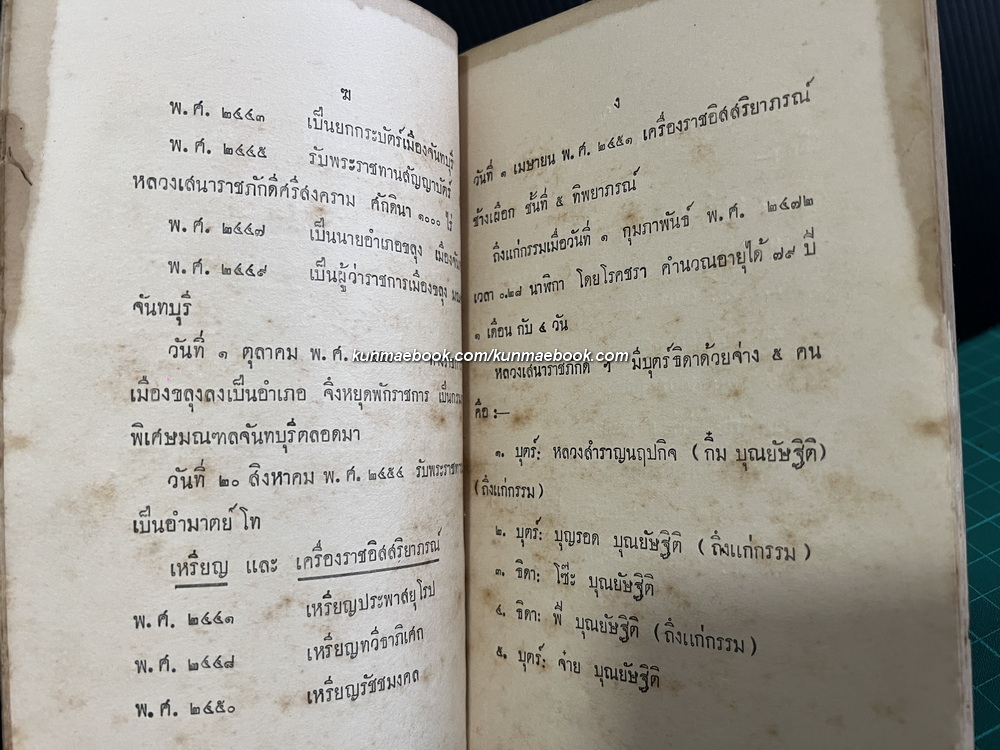 ฆ
พ.ศ. ๒๔๔๓ เป็นยกกระบัตร์เมืองจันทบุรี
พ.ศ. ๒๔๔๕ รับพระราชทานสัญญาบัตร์
หลวงเสนาราชภักดีศรีสงคราม ศักดินา ๑๐๐๐ ไร่
พ.ศ. ๒๔๔๗ เป็นนายอำเภอขลุง
พ.ศ. ๒๔๔๙ เป็นผู้ว่าราชการเมืองขลุง
จันทบุรี
วันที่ ๑ ตุลาคม พ.ศ.
เมืองขลุงลงเป็นอำเภอ จึ่งหยุดพักราชการ
พิเศษมณฑลจันทบุรีตลอดมา
วันที่ ๒๐ สิงหาคม พ.ศ. ๒๔๕๔ รับพระราชทาน
เป็นอำมาตย์โท
เหรียญ และ เครื่องราชอิสสริยาภรณ์
พ.ศ. ๒๔๔๑ เหรียญประพาสยุโรป
พ.ศ. ๒๔๔๘ เหรียญทวีธาภิเศก
พ.ศ. ๒๔๕๐ เหรียญรัชชมงคล
ง
วันที่ ๑ เมษายน พ.ศ. ๒๔๕๑ เครื่องราชอิสสริยาภรณ์
ช้างเผือก ชั้นที่ ๕ ทิพยาภรณ์
ถึงแก่กรรมเมื่อวันที่ ๑ กุมภาพันธ์ พ.ศ. ๒๔๗๒
เวลา ๐.๒๘ นาฬิกา โดยโรคชรา คำนวณอายุได้ ๗๙ ปี
๑ เดือน กับ ๔ วัน
kunmaebook.com/kunmaebook.com
หลวงเสนาราชภักดี ฯ มีบุตร์ธิดาด้วยจ่าง ๕ คน
คือ :—
๑. บุตร์: หลวงสำราญนฤปกิจ (กิ๊ม บุณยัษฐิติ)
(ถึงแก่กรรม)
๒. บุตร์: บุญรอด บุณยัษฐิติ (ถึงแก่กรรม)
๓. ธิดา: โซ๊ะ บุณยัษฐิติ
๔. ธิดา: พี่ บุณยัษฐิติ (ถึงแก่กรรม)
๕. บุตร์: จ๋าย บุณยัษฐิติ